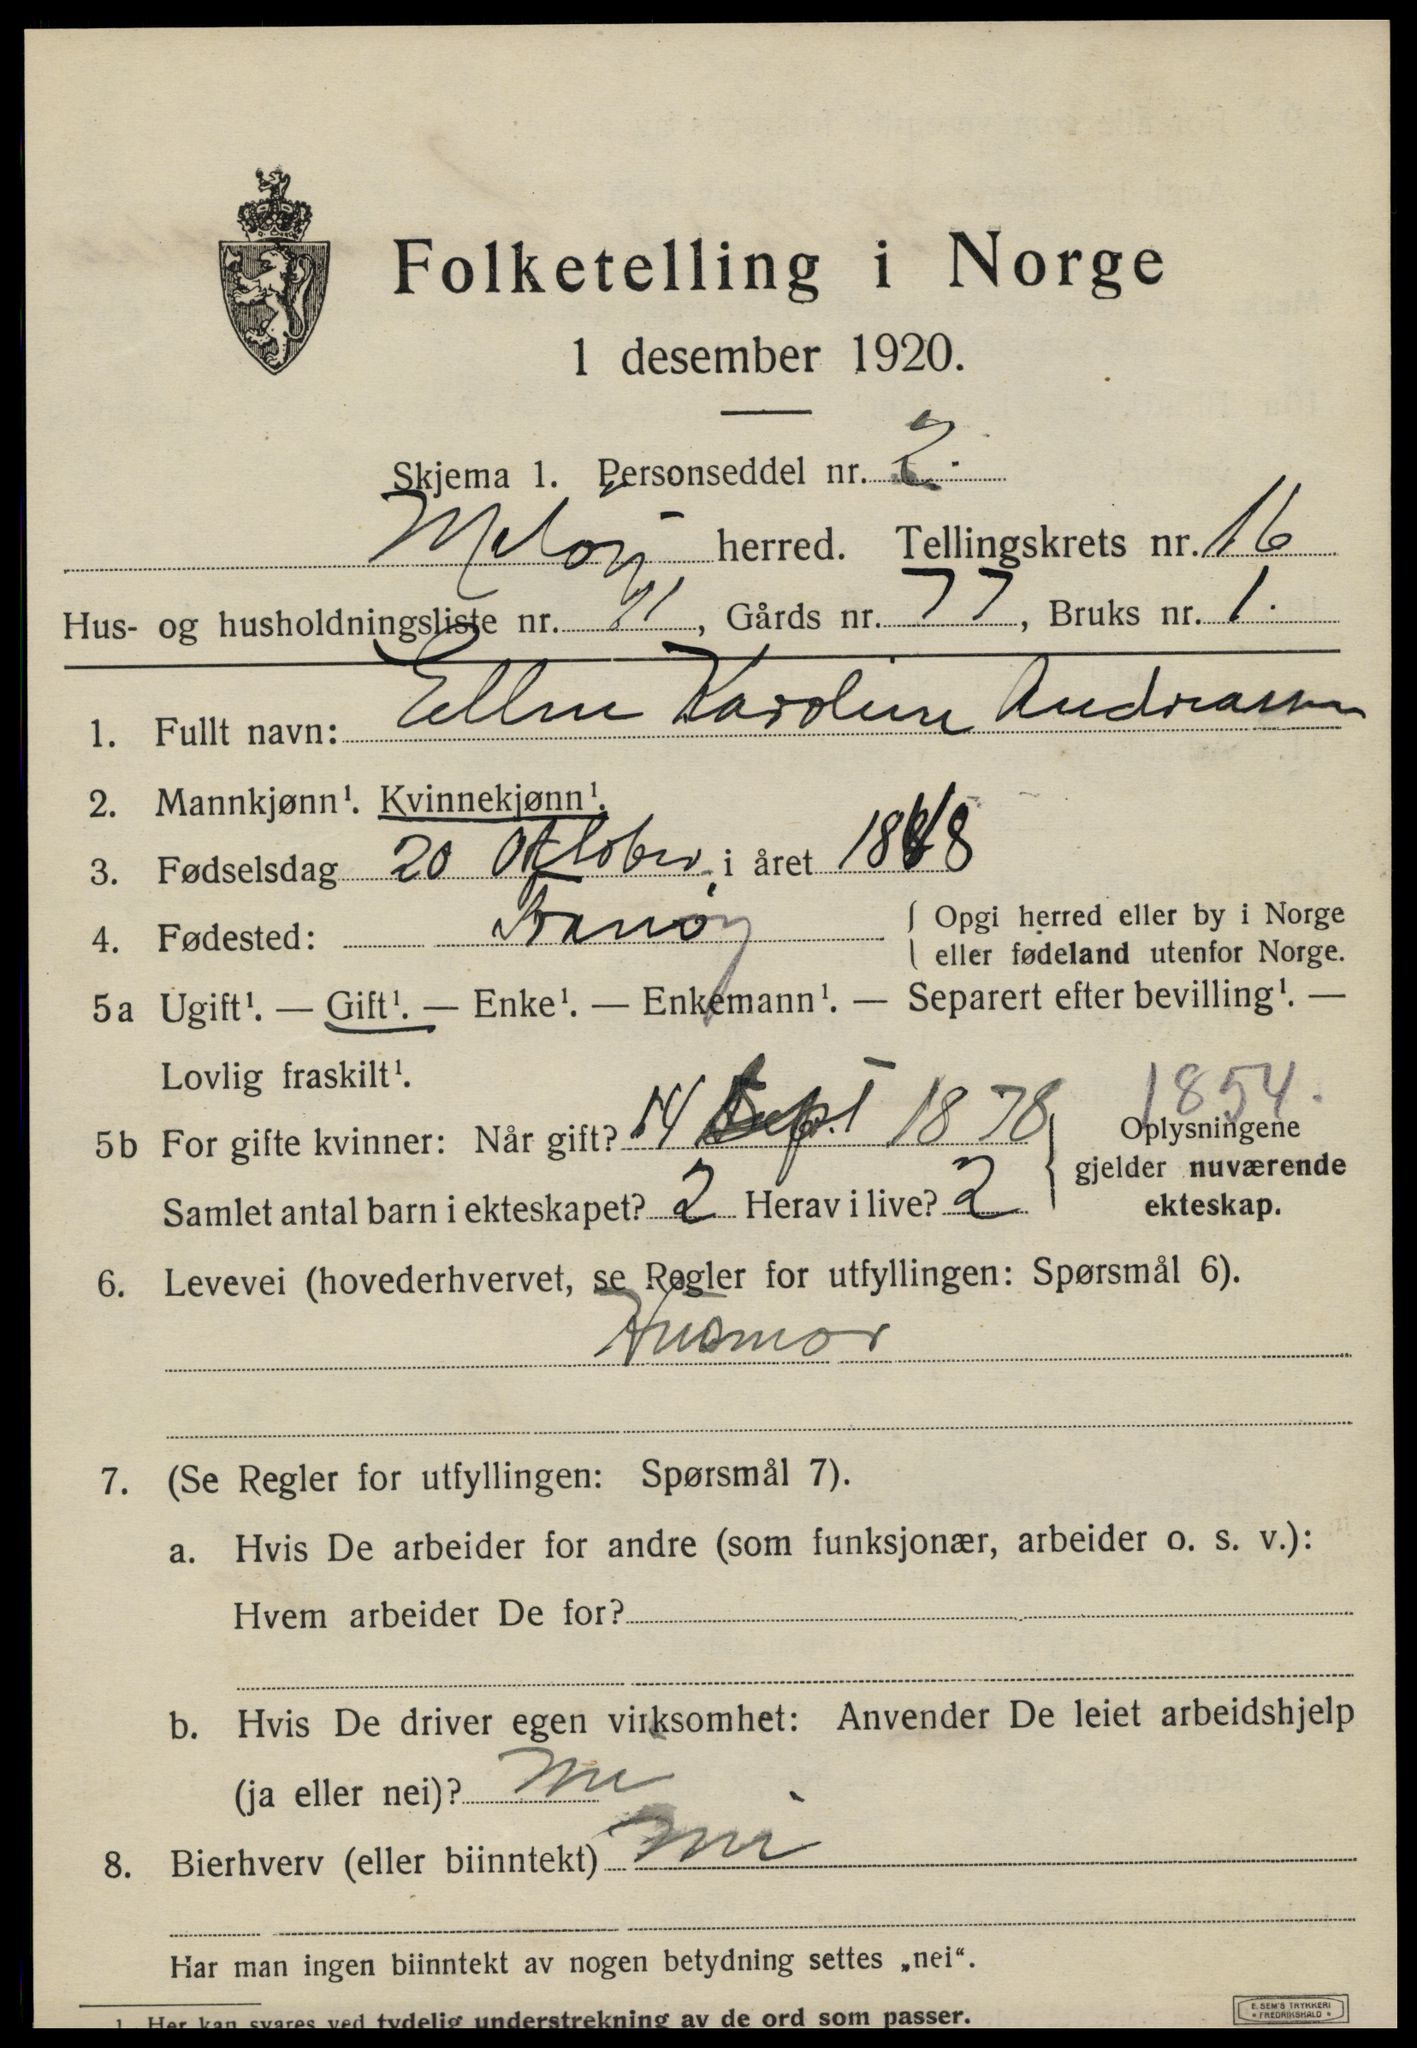 Folketelling i Norge
1 desember 1920.
Skjema 1. Personseddel nr. 2.
Meløy herred. Tellingskrets nr. 16
Hus- og husholdningsliste nr. 71, Gårds nr. 77, Bruks nr. 1.
1. Fullt navn: Ellen Karoline Andreassen
2. Mannkjønn¹. Kvinnekjønn¹.
3. Fødselsdag 20 Oktober, i året 1848
4. Fødested: Tranøy { Opgi herred eller by i Norge
eller fødeland utenfor Norge.
5a Ugift¹. — Gift¹. — Enke¹. — Enkemann¹. — Separert efter bevilling¹. —
Lovlig fraskilt¹.
1854.
5b For gifte kvinner: Når gift? 14 Sept 1878 } Oplysningene
gjelder nuværende
Samlet antal barn i ekteskapet? 2 Herav i live? 2
ekteskap.
6. Levevei (hovederhvervet, se Regler for utfyllingen: Spørsmål 6).
Husmor
7. (Se Regler for utfyllingen: Spørsmål 7).
a. Hvis De arbeider for andre (som funksjonær, arbeider o. s. v.):
Hvem arbeider De for?
b. Hvis De driver egen virksomhet: Anvender De leiet arbeidshjelp
(ja eller nei)? nei
8. Bierhverv (eller biinntekt) nei
Har man ingen biinntekt av nogen betydning settes „nei“.
1. Her kan svares ved tydelig understrekning av de ord som passer.
E. SEM'S TRYKKERI
* FREDRIKSHALD *